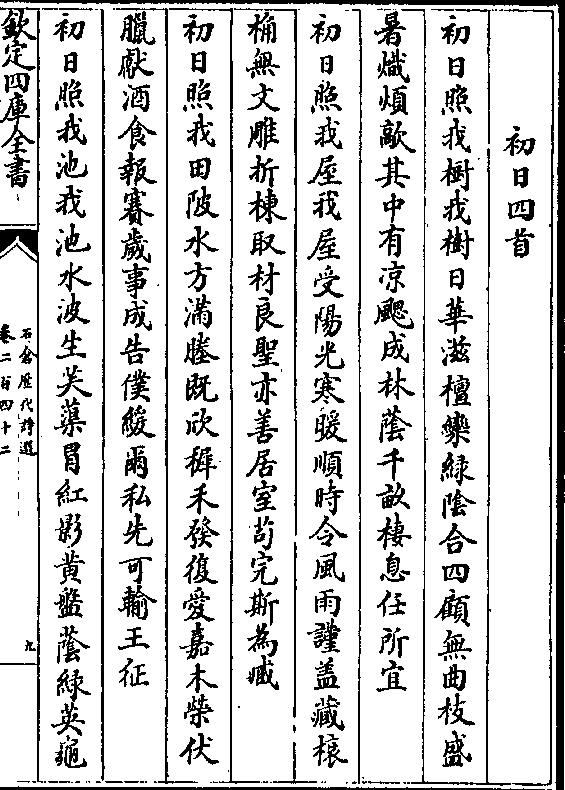 初日四首
初日照我樹我樹日華滋檀欒緑陰合四顧無曲枝盛
暑熾煩歊其中有凉颸成林蔭千畝棲息任所宜
初日照我屋我屋受陽光寒暖順時令風雨謹葢藏榱
桷無文雕折棟取材良聖亦善居室苟完斯為臧
初日照我田陂水方滿塍既欣穉禾發復愛嘉木榮伏
臘獻酒食報賽歲事成告僕緩爾私先可輸王征
初日照我池我池水波生芙蕖冒紅影黄盤蔭緑英龜
欽定四庫全書
石倉歴代詩選
卷二百四十二
九